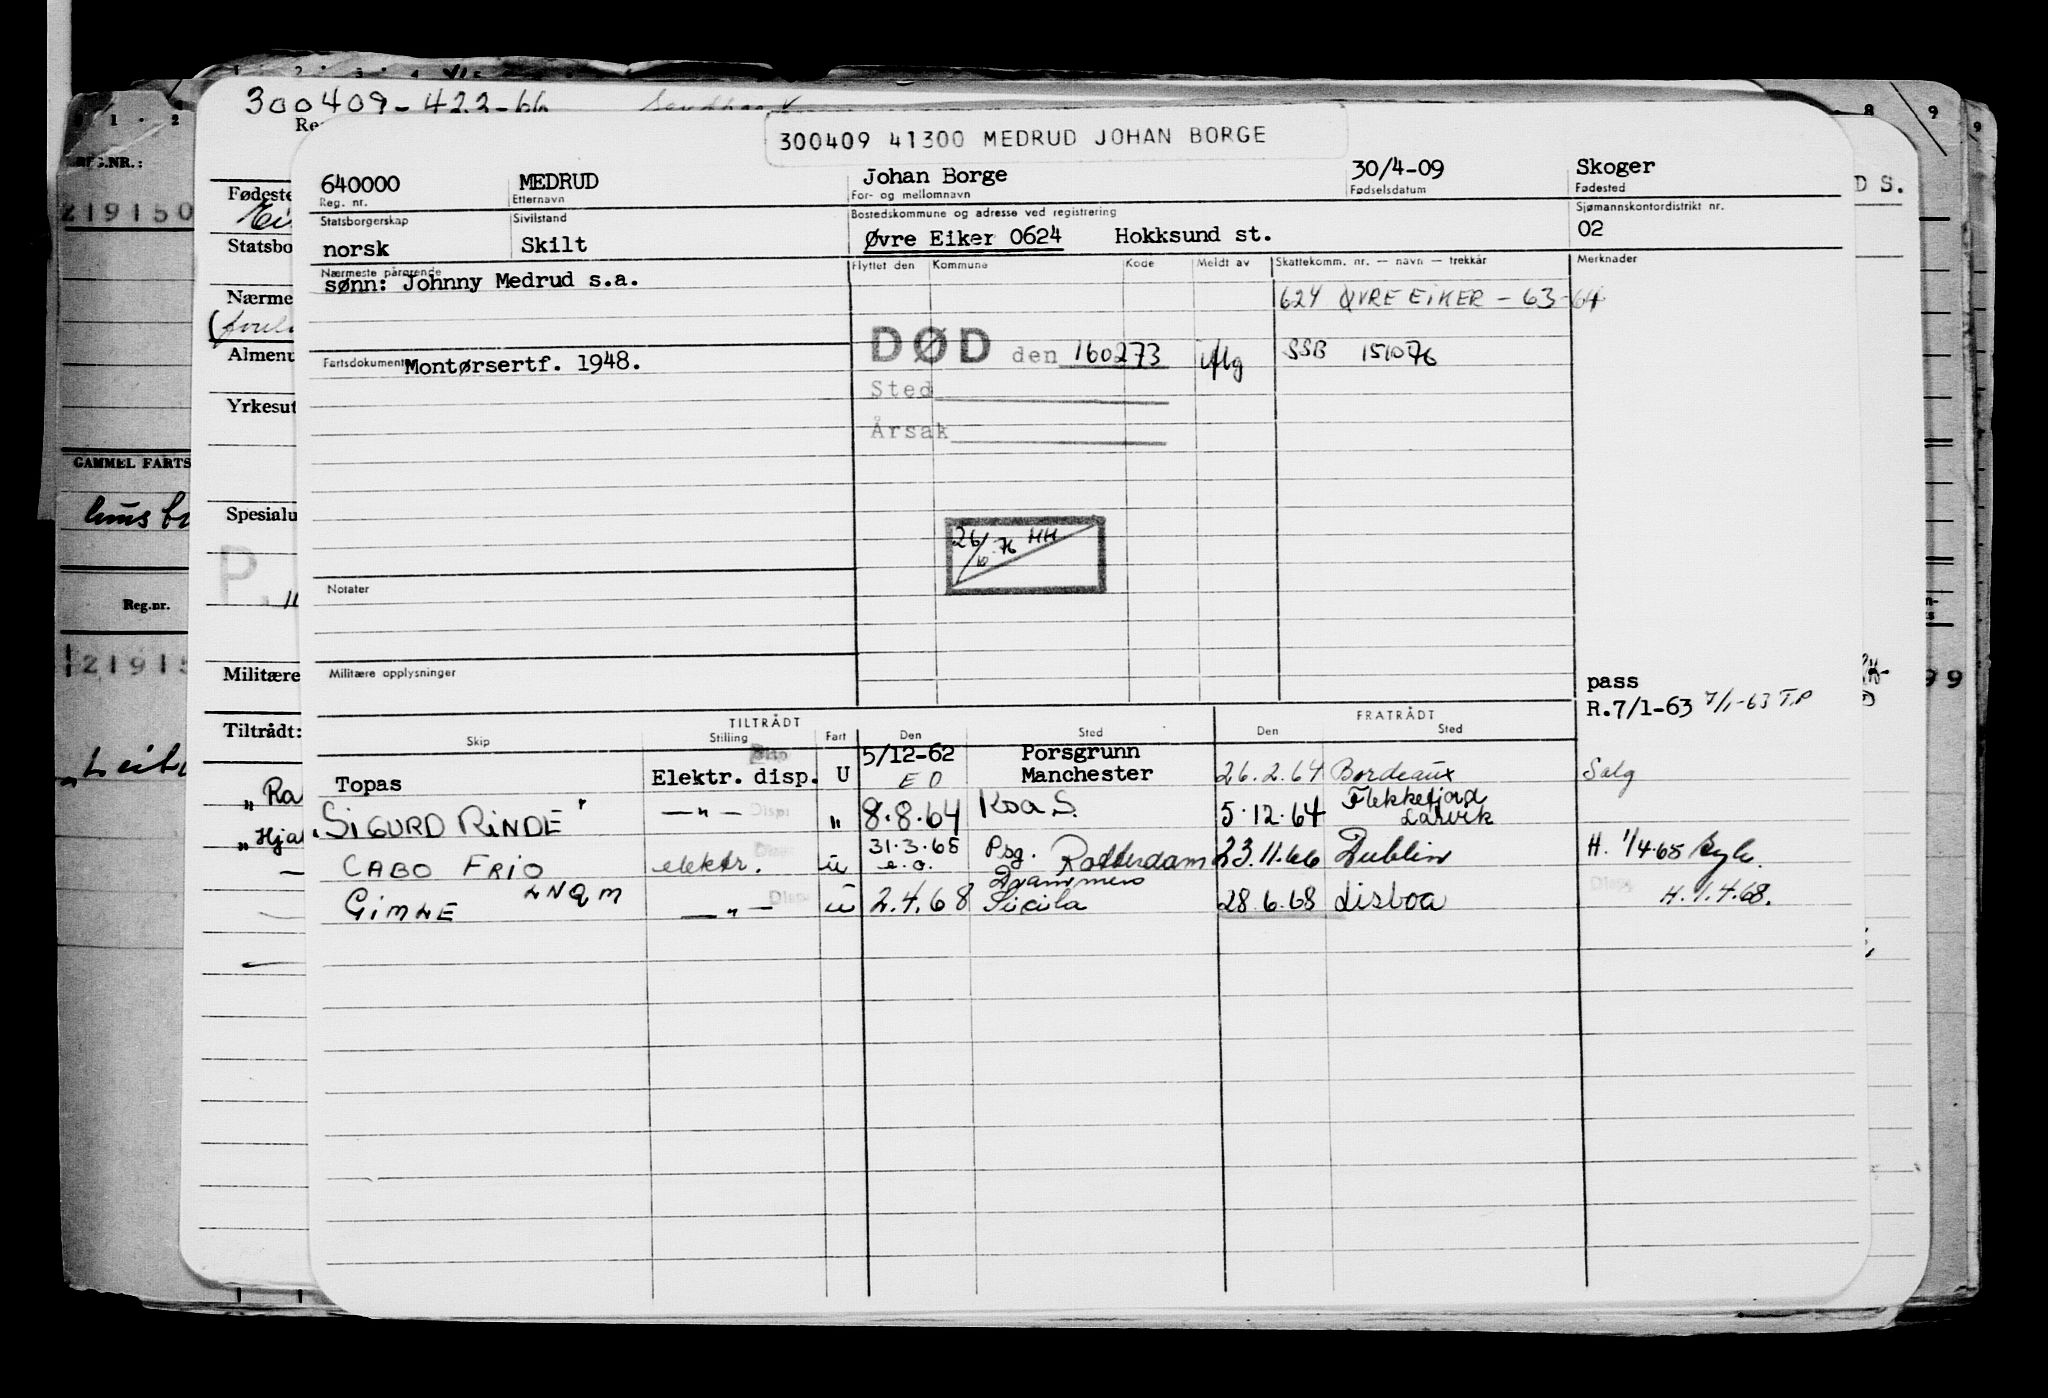 300409-422-66
300409 41300 MEDRUD JOHAN BORGE
640000 MEDRUD Johan Borge 30/4-09 Skoger
Reg. nr. Etternavn For- og mellomnavn Fødselsdatum Fødested
Statsborgerskap Sivilstand Bostedskommune og adresse ved registrering Sjømannskontordistrikt nr.
norsk Skilt Øvre Eiker 0624 Hokksund st. 02
Nærmeste pårørende Flyttet den Kommune Kode Meldt av Skattekomm. nr. — navn — trekkår Merknader
sønn: Johnny Medrud s.a.
624 ØVRE EIKER - 63-64
DØD den 160273 SSB 151076
Fartsdokumenter Montørsertf. 1948.
Sted
Årsak
26/10-76 HH
Notater
Militære opplysninger
pass
R.7/1-63 7/1-63 T.P
TILTRÅDT FRATRÅDT
Skip Stilling Fart Den Sted Den Sted
5/12-62 Porsgrunn
Topas Elektr. disp. U E O Manchester 26.2.64 Bordeaux Salg
"SIGURD RINDE" —"— Disp " 8.8.64 Koa S. 5.12.64 Flekkefjord Larvik
CABO FRIO elektr. u 31.3.65 e.o. Psg. Rotterdam 23.11.66 Dublin H. 1/4-65
GIMLE LNQM —"— Disp u 2.4.68 Drammen 28.6.68 Lisboa Disp H.1.4.68.
REG.NR.:
219150
GAMMEL FARTS
Reg.nr.
Fødeste
Statsbo
Nærme
Almenu
Yrkesut
Spesialu
P.
Militære
Tiltrådt:
"Ra
"Hja
D S.
8 9
99